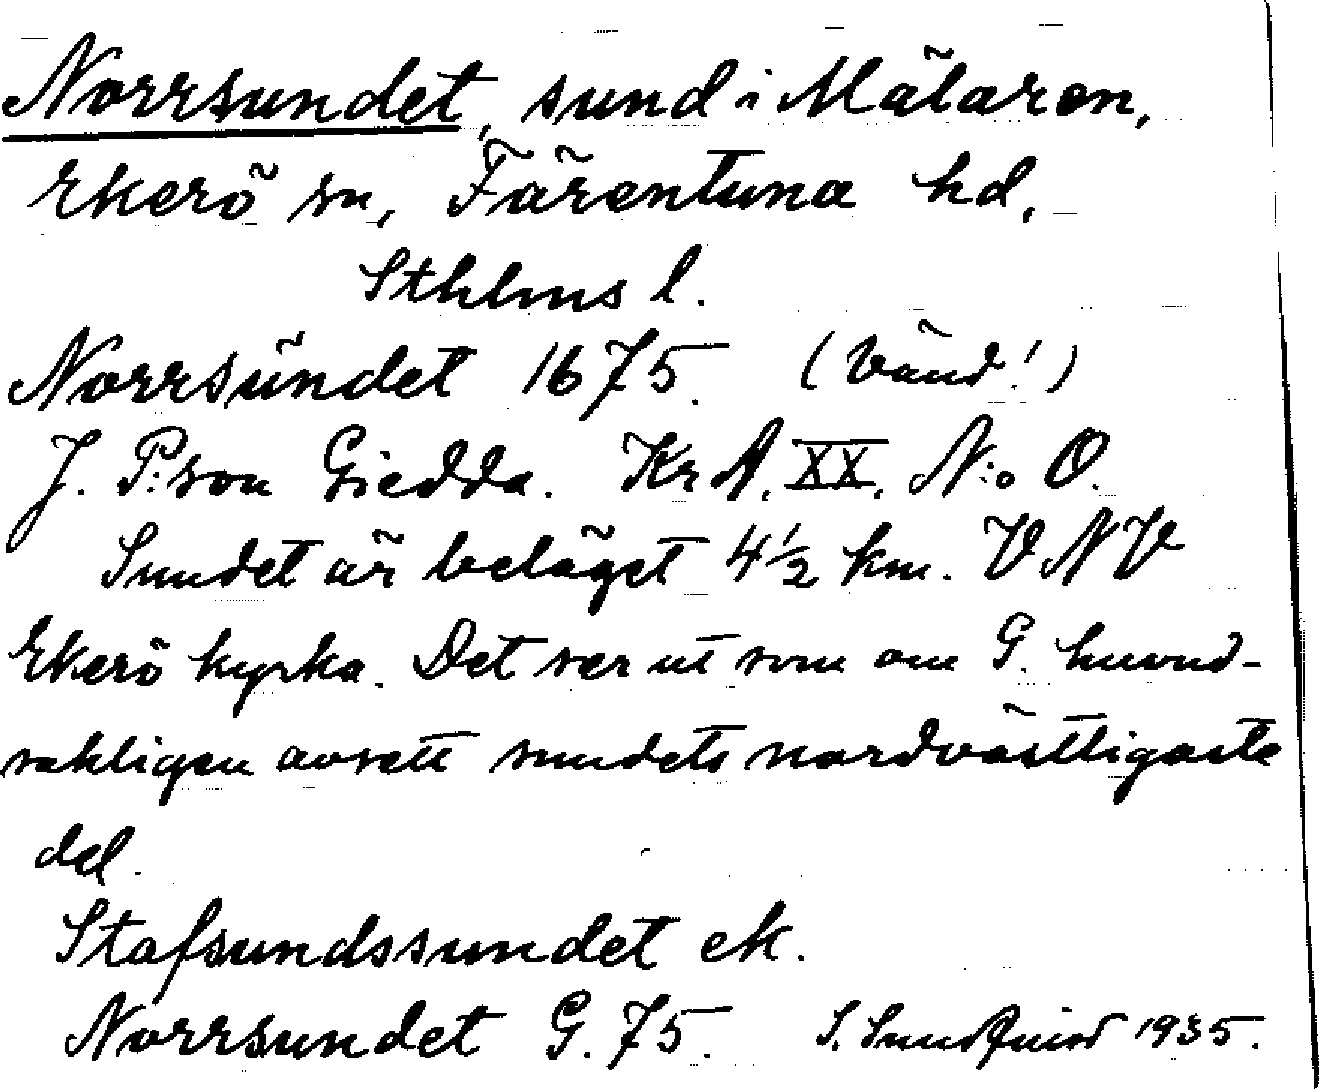 Norrsundet, sund i Mälaren,
Ekerö sn, Färentuna hd,
Sthlms l.
Norrsŭndet 1675. (Vänd!)
J. P:son Giedda. KrA. XX. N:o O.
Sundet är beläget 4½ km. VNV
Ekerö kyrka. Det ser ut som om G. huvud-
sakligen avsett sundets nordvästligaste
del.
Stafsundssundet ek.
Norrsundet G. 75. S. Sundquist 1935.